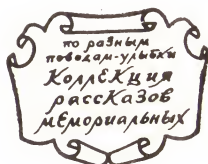 по разным
поводам-улыбки
КоллЕКция
рассКазов
мЕмориальных